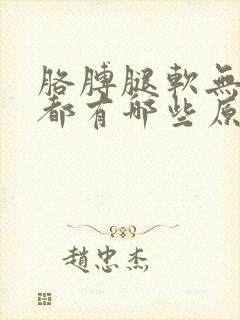 胳膊腿軟無
都有哪些原
趙忠杰